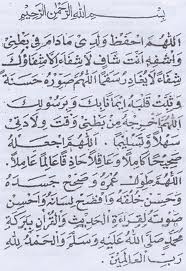 بِسْمِ اللهِ الرَّحْمَنِ الرَّحِيْمِ
اَللّٰهُمَّ احْفَظْ وَلَدِيْ مَادَامَ فِيْ بَطْنِيْ
وَاشْفِهِ اَنْتَ شَافٍ لَا شِفَاءَ اِلَّا شِفَاؤُكَ
شِفَاءً لَا يُغَادِرُ سَقَمًا اَللّٰهُمَّ صَوِّرْهُ حَسَنَةً
وَثَبِّتْ قَلْبَهُ اِيْمَانًا بِكَ وَبِرَسُوْلِكَ
اَللّٰهُمَّ اَخْرِجْهُ مِنْ بَطْنِيْ وَقْتَ وِلَادَتِيْ
سَهْلًا وَتَسْلِيْمًا اَللّٰهُمَّ اجْعَلْهُ
صَحِيْحًا كَامِلًا وَعَاقِلًا حَاذِقًا عَالِمًا عَامِلًا
اَللّٰهُمَّ طَوِّلْ عُمُرَهُ وَصَحِّحْ جَسَدَهُ
وَحَسِّنْ خُلُقَهُ وَافْصَحْ لِسَانَهُ وَاَحْسِنْ
صَوْتَهُ لِقِرَاءَةِ الْحَدِيْثِ وَالْقُرْآنِ بِبَرَكَةِ
مُحَمَّدٍ صَلَّى اللهُ عَلَيْهِ وَسَلَّمَ وَالْحَمْدُ لِلّٰهِ
رَبِّ الْعَالَمِيْنَ